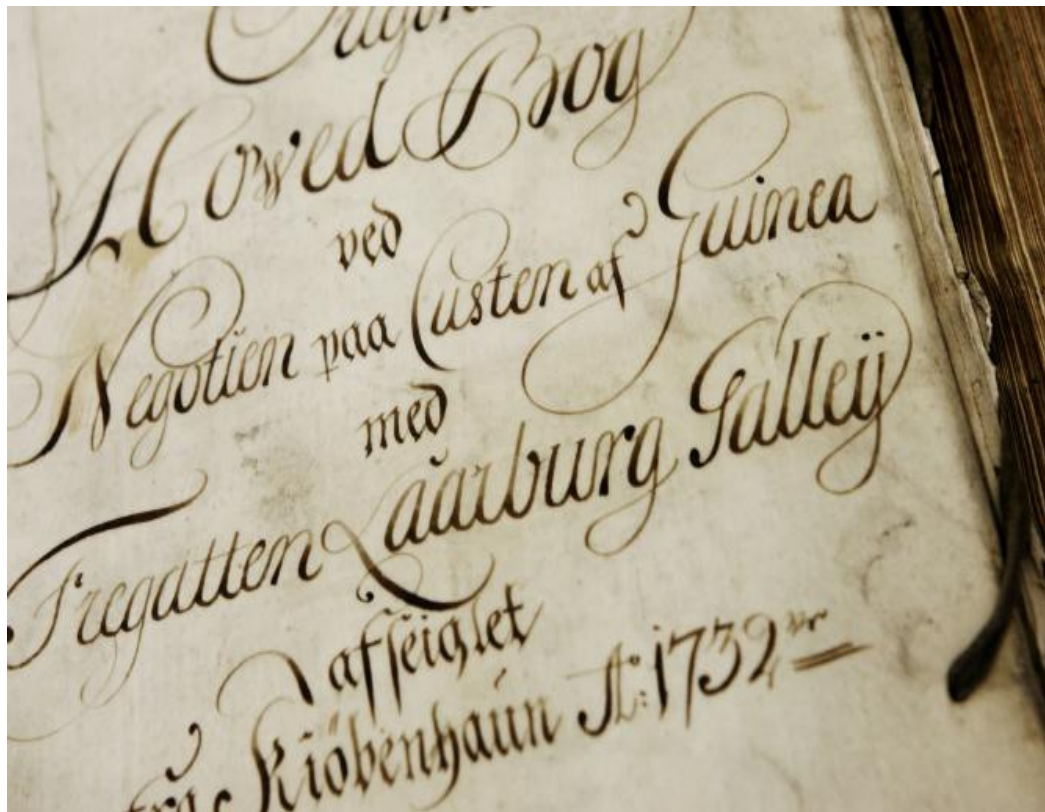 Howed Bog
ved
Negotien paa Custen af Guinea
med
Fregatten Laarburg Galleÿ
affseiglet
fra Kiöbenhaŭn Ao: 1732